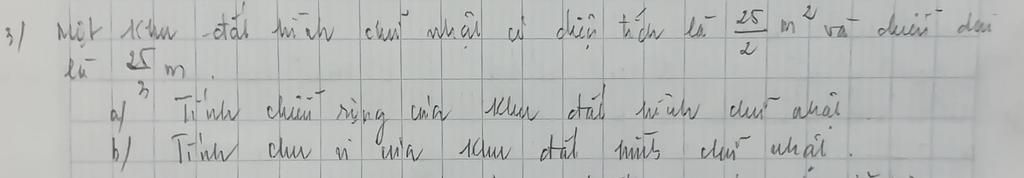 3/ Một khu đất hình chữ nhật có diện tích là 25/2 m² và chiều dài
là 25/3 m.
a) Tính chiều rộng của khu đất hình chữ nhật
b) Tính chu vi của khu đất hình chữ nhật.